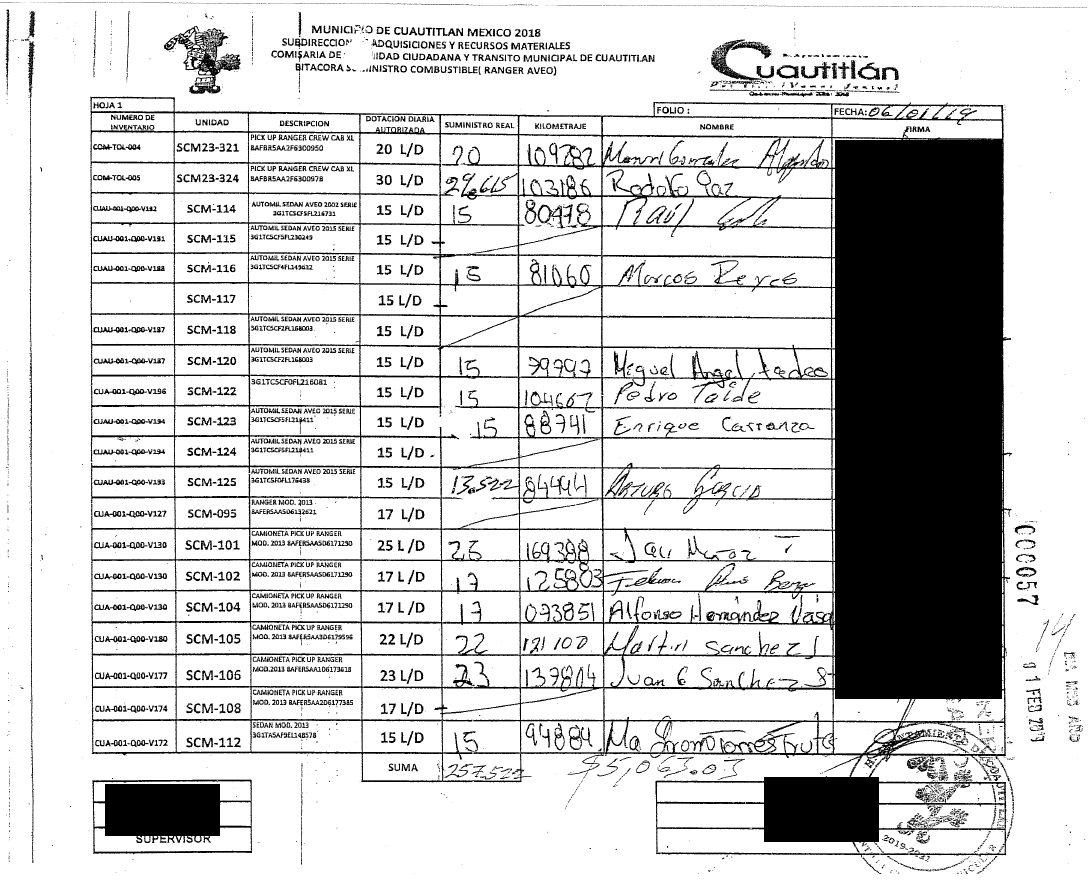 MUNICIPIO DE CUAUTITLAN MEXICO 2018
SUBDIRECCION ADQUISICIONES Y RECURSOS MATERIALES
COMISARIA DE IDAD CIUDADANA Y TRANSITO MUNICIPAL DE CUAUTITLAN
BITACORA SU INISTRO COMBUSTIBLE( RANGER AVEO)
Cuautitlán
HOJA 1 FOLIO : FECHA: 06/01/19
NUMERO DE INVENTARIO UNIDAD DESCRIPCION DOTACION DIARIA AUTORIZADA SUMINISTRO REAL KILOMETRAJE NOMBRE FIRMA
COM-TOL-004 SCM23-321 PICK UP RANGER CREW CAB XL 8AFBR5AA2F6300950 20 L/D 20 109282
COM-TOL-005 SCM23-324 PICK UP RANGER CREW CAB XL 8AFBR5AA2F6300978 30 L/D 103186 Rodolfo Paz
CUAU-001-Q00-V192 SCM-114 AUTOMIL SEDAN AVEO 2002 SERIE 3G1TC5CF5FL216731 15 L/D 15 80478 Raúl
CUAU-001-Q00-V191 SCM-115 AUTOMIL SEDAN AVEO 2015 SERIE 15 L/D
CUAU-001-Q00-V188 SCM-116 AUTOMIL SEDAN AVEO 2015 SERIE 15 L/D 15 81060 Marcos Reyes
SCM-117 15 L/D
CUAU-001-Q00-V187 SCM-118 AUTOMIL SEDAN AVEO 2015 SERIE 3G1TC5CF2FL168003 15 L/D
CUAU-001-Q00-V187 SCM-120 AUTOMIL SEDAN AVEO 2015 SERIE 3G1TC5CF2FL168003 15 L/D 15 79797 Miguel Angel
CUA-001-Q00-V196 SCM-122 3G1TC5CF0FL216081 15 L/D 15 104607 Pedro
CUAU-001-Q00-V194 SCM-123 AUTOMIL SEDAN AVEO 2015 SERIE 3G1TC5CF5FL218411 15 L/D 15 88741 Enrique Carranza
CUAU-001-Q00-V194 SCM-124 AUTOMIL SEDAN AVEO 2015 SERIE 3G1TC5CF5FL218411 15 L/D
CUAU-001-Q00-V193 SCM-125 AUTOMIL SEDAN AVEO 2015 SERIE 15 L/D 13.522 84444 Arturo Garcia
CUA-001-Q00-V127 SCM-095 RANGER MOD. 2013 17 L/D
CUA-001-Q00-V130 SCM-101 CAMIONETA PICK UP RANGER MOD. 2013 8AFER5AA5D6171290 25 L/D 25 169388
CUA-001-Q00-V130 SCM-102 CAMIONETA PICK UP RANGER MOD. 2013 8AFER5AA5D6171290 17 L/D 17 125803
CUA-001-Q00-V130 SCM-104 CAMIONETA PICK UP RANGER MOD. 2013 8AFER5AA5D6171290 17 L/D 17 093851 Alfonso Hernández Vásq
CUA-001-Q00-V180 SCM-105 CAMIONETA PICK UP RANGER MOD.2013 8AFER5AA3D6179596 22 L/D 22 121100 Martin Sanchez J
CUA-001-Q00-V177 SCM-106 CAMIONETA PICK UP RANGER MOD.2013 8AFER5AA1D6173618 23 L/D 23 139804 Juan C Sanchez
CUA-001-Q00-V174 SCM-108 CAMIONETA PICK UP RANGER MOD. 2013 8AFER5AA2D6177385 17 L/D
CUA-001-Q00-V172 SCM-112 SEDAN MOD. 2013 3G1TA5AF9EL148578 15 L/D 15 94884
SUMA 257.522 $5,063.03
SUPERVISOR
000057
14
01 FEB 2019
2019-2021